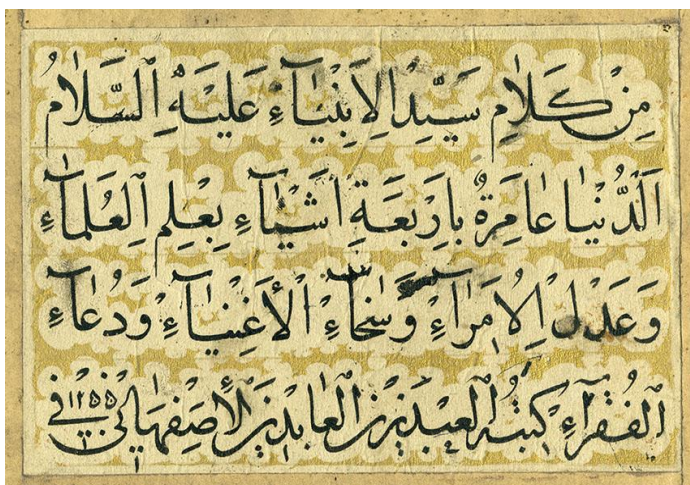 مِنْ كَلَامِ سَيِّدِ الْاَنْبِيَآءِ عَلَيْهِ السَّلَامُ
اَلدُّنْيَا عَامِرَةٌ بِاَرْبَعَةِ اَشْيَآءٍ بِعِلْمِ الْعُلَمَآءِ
وَعَدْلِ الْاُمَرَآءِ وَسَخَآءِ الْاَغْنِيَآءِ وَدُعَآءِ
الْفُقَرَآءِ كتبه العبد زين العابدين الاصفهانى فى ١٢٥٥